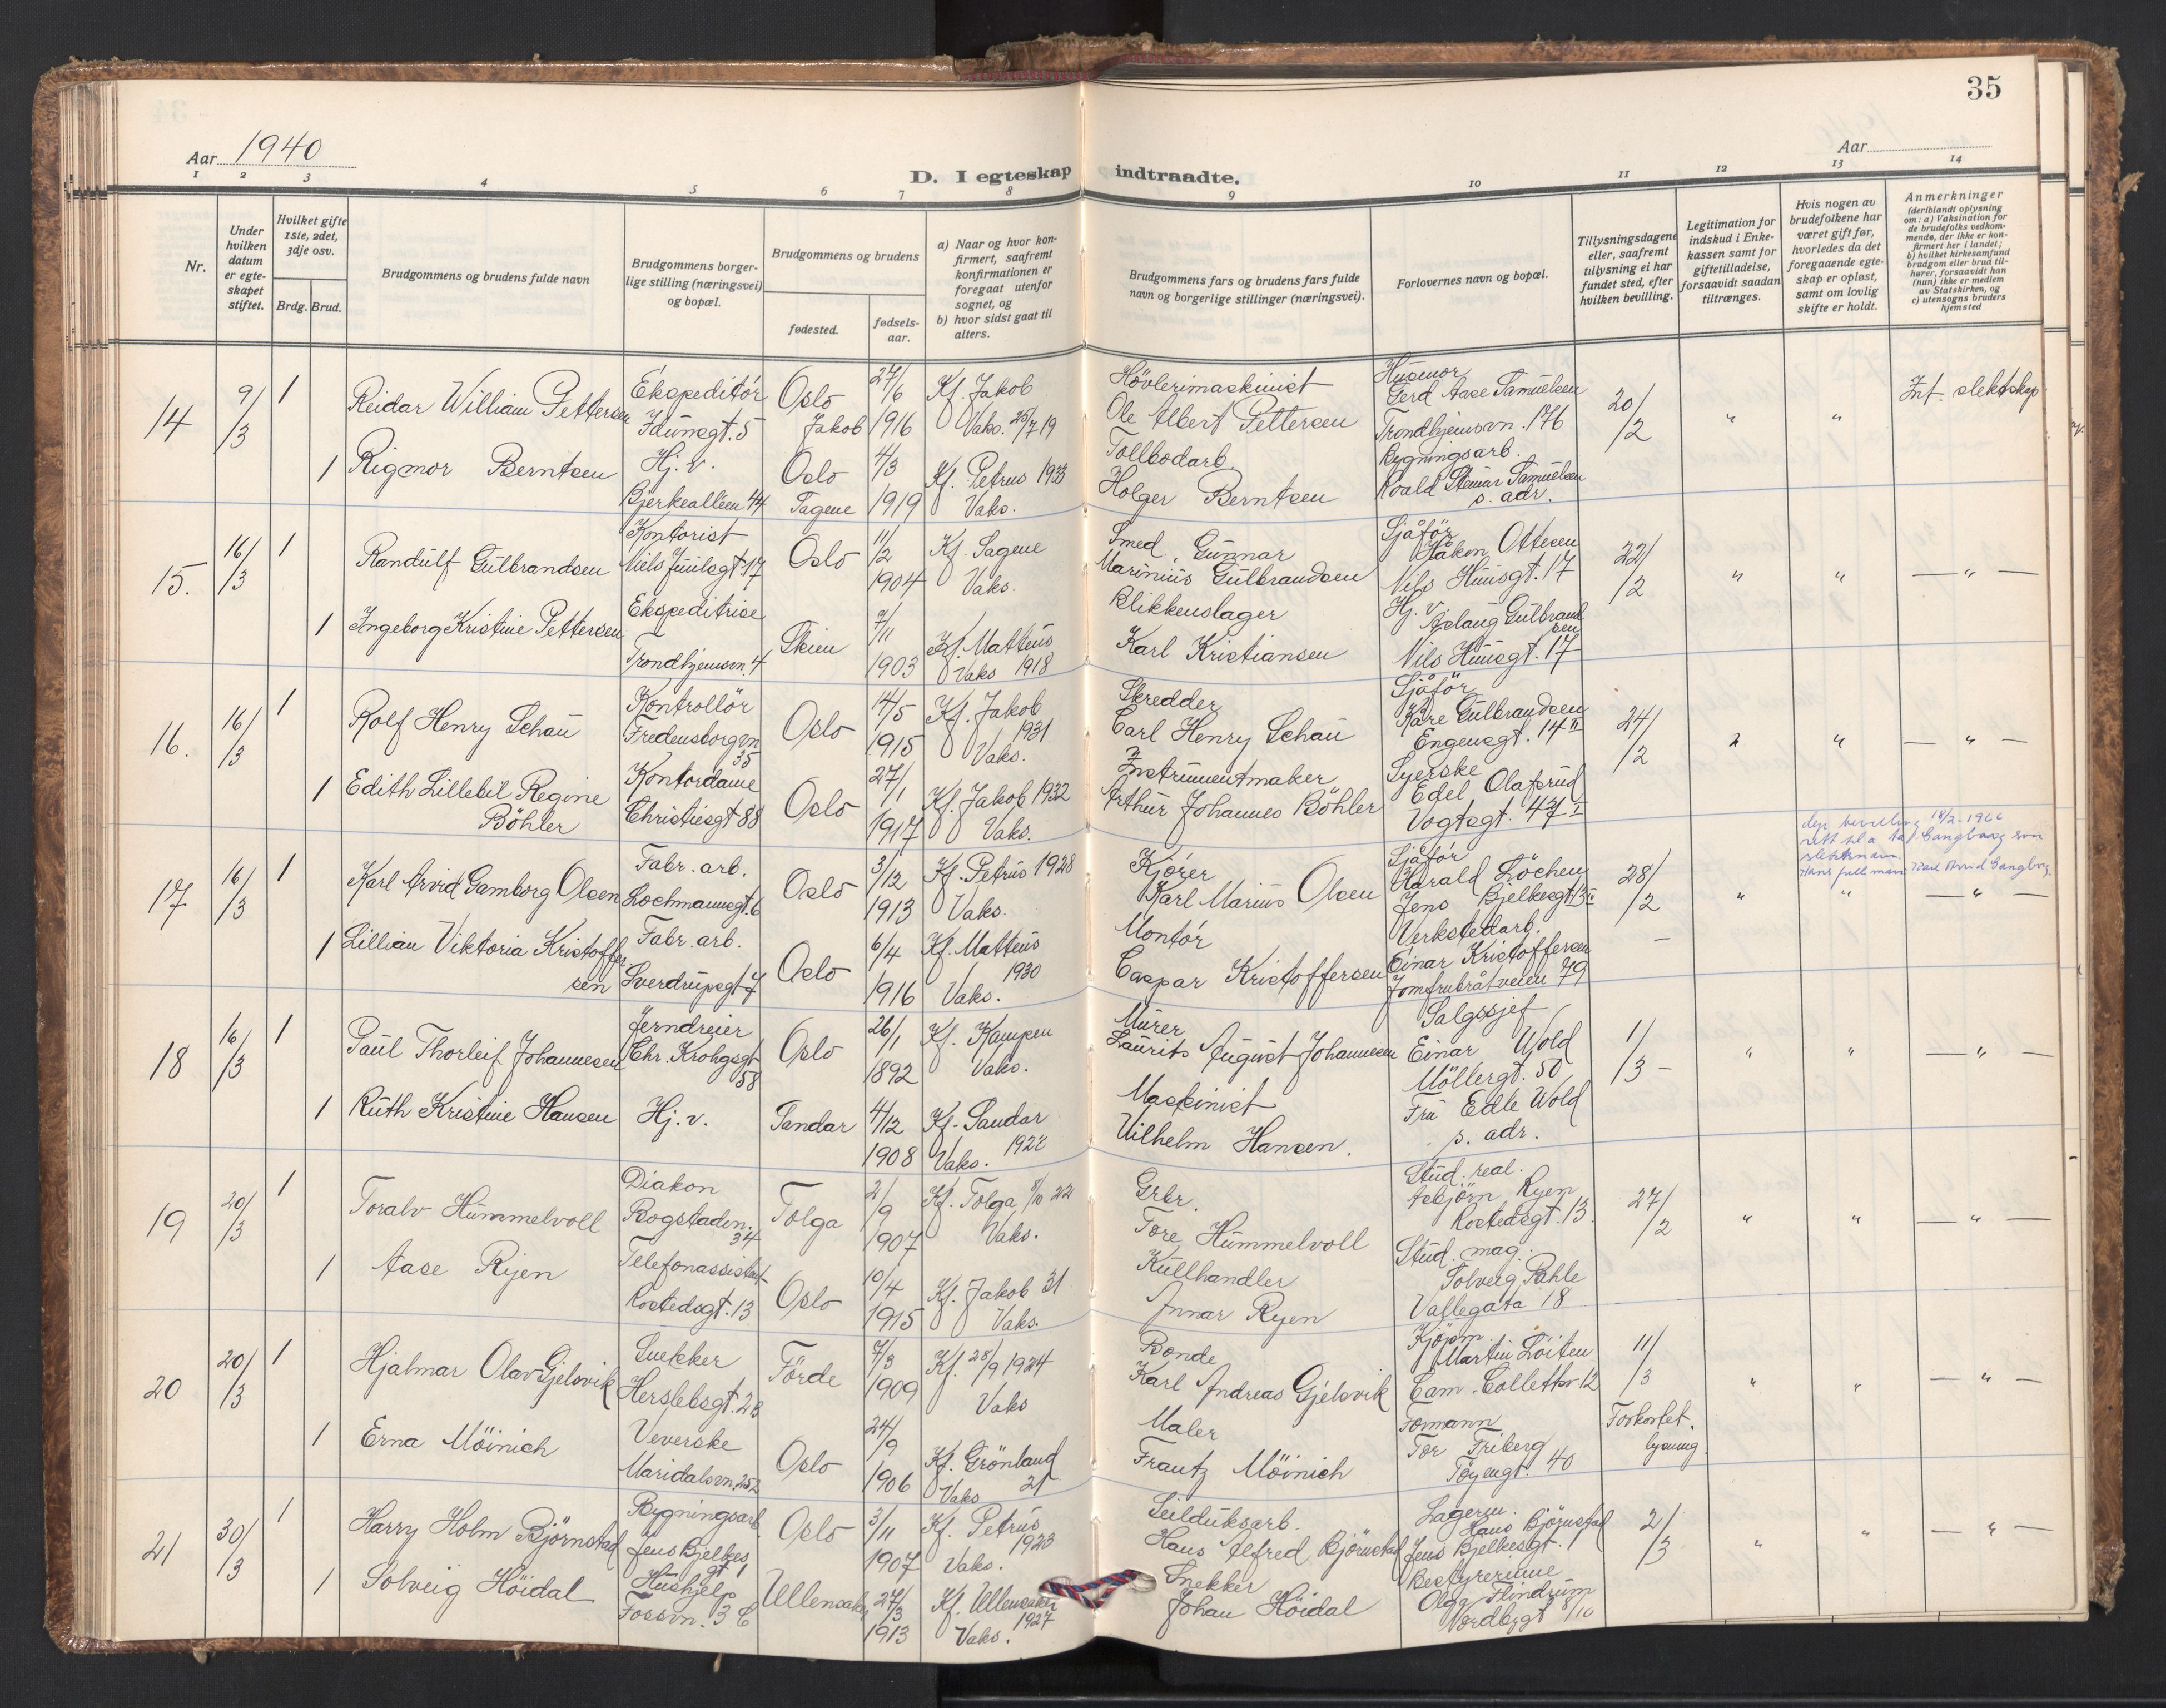 35
Aar 1940
Aar
D. I egteskap indtraadte.
1 2 3 4 5 6 7 8 9 10 11 12 13 14
Nr.
Under hvilken datum er egteskapet stiftet.
Hvilket gifte 1ste, 2det, 3dje osv.
Brdg. Brud.
Brudgommens og brudens fulde navn
Brudgommens borgerlige stilling (næringsvei) og bopæl.
Brudgommens og brudens
fødested.
fødselsaar.
a) Naar og hvor konfirmert, saafremt konfirmationen er foregaat utenfor sognet, og
b) hvor sidst gaat til alters.
Brudgommens fars og brudens fars fulde navn og borgerlige stillinger (næringsvei).
Forlovernes navn og bopæl.
Tillysningsdagene eller, saafremt tillysning ei har fundet sted, efter hvilken bevilling.
Legitimation for indskud i Enkekassen samt for giftetilladelse, forsaavidt saadan tiltrænges.
Hvis nogen av brudefolkene har været gift før, hvorledes da det foregaaende egteskap er opløst, samt om lovlig skifte er holdt.
Anmerkninger
(deriblandt oplysning om: a) Vaksination for de brudefolks vedkommende, der ikke er konfirmert her i landet; b) hvilket kirkesamfund brudgom eller brud tilhører, forsaavidt han (hun) ikke er medlem av Statskirken, og c) utensogns bruders hjemsted
14 9/3 1 Reidar William Pettersen Ekspeditør Idunsgt. 5 Oslo Jakob 27/6 1916 Kf. Jakob Vaks. 25/7 19 Høvlerimaskinist Ole Albert Pettersen Husmor Gerd Aase Samuelsen Trondhjemsvn. 176 20/2 " " Int. slektskap
1 Rigmor Berntsen Hj. v. Bjerkealleen 44 Oslo Sagene 4/3 1919 Kf. Petrus 1933 Vaks. Tollbodarb. Holger Berntsen Bygningsarb. Roald Steinar Samuelsen s. adr.
15. 16/3 1 Randulf Gulbrandsen Kontorist Niels Juulsgt. 17 Oslo 11/2 1904 Kf. Sagene Vaks. Smed Gunnar Marinius Gulbrandsen Sjåfør Håkon Ottesen Nils Huusgt. 17 22/2 " " — " —
1 Ingeborg Kristine Pettersen Ekspeditrise Trondhjemsvn. 4 Skien 7/11 1903 Kf. Matteus Vaks 1918 Blikkenslager Karl Kristiansen Hj. v. Aslaug Gulbrandsen Nils Huusgt. 17
16. 16/3 1 Rolf Henry Schau Kontrollør Fredensborgvn 35 Oslo 14/5 1915 Kf. Jakob 1931 Vaks. Skredder Carl Henry Schau Sjåfør Kåre Gulbrandsen Engensgt. 14 II 24/2 " " — " —
1 Edith Lillebil Regine Böhler Kontordame Christiesgt 88 Oslo 27/1 1917 Kf. Jakob 1932 Vaks. Instrumentmaker Arthur Johannes Böhler Syerske Edel Olafsrud Vogtsgt. 47 I
17 16/3 1 Karl Arvid Gamborg Olsen Fabr. arb. Lochmannsgt. 6 Oslo 3/12 1913 Kf. Petrus 1928 Vaks. Kjører Karl Marius Olsen Sjåfør Harald Løchen Jens Bjelkesgt. 28/2 " " — " —
18/2-1966 rett til å ta Gangborg som slektsnavn. Hans fulle navn: Karl Arvid Gangborg.
1 Lillian Viktoria Kristoffersen Fabr. arb. Sverdrupsgt 7 Oslo 6/4 1916 Kf. Matteus 1930 Vaks. Montør Caspar Kristoffersen Verkstedarb. Einar Kristoffersen Jomfrubråtveien 79 —
18 16/3 1 Paul Thorleif Johannesen Jerndreier Chr. Krohgsgt 58 Oslo 26/1 1892 Kf. Kampen Vaks. Murer Laurits August Johannesen Salgssjef Einar Wold Möllergt. 50 1/3 — " " — " —
1 Ruth Kristine Hansen Hj. v. Sandar 4/12 1908 Kf. Sandar Vaks. 1922 Maskinist Vilhelm Hansen. Fru Edle Wold s. adr.
19 20/3 1 Toralv Hummelvoll Diakon Bogstadvn. 34 Tolga 2/9 1907 Kf. Tolga 8/10 22 Vaks. Grbr. Tore Hummelvoll Stud. real. Asbjørn Ryen Rostedsgt. 13. 27/2 " " — " —
1 Aase Ryen Telefonassistent Rostedsgt. 13 Oslo 10/4 1915 Kf. Jakob 31 Vaks. Kullhandler Annar Ryen Stud. mag. Solveig Pahle Vallegata 18
20 20/3 1 Hjalmar Olav Gjelsvik Snekker Herslebsgt. 23 Førde 7/3 1909 Kf. 28/9 1924 Vaks Bonde Karl Andreas Gjelsvik Kjøpm. Martin Löiten Cam. Collettsv. 12 11/3 " " — " —
1 Erna Möinich Veverske Maridalsvn. 252 Oslo 24/9 1906 Kf. Grönland Vaks 21 Maler Frantz Möinich Formann Tor Friberg Tøyengt. 40 Forkortet lysning.
21 30/3 1 Harry Holm Björnstad Bygningsarb. Jens Bjelkes gt 1 Oslo 3/11 1907 Kf. Petrus 1923 Vaks. Seilduksarb. Hans Alfred Björnstad Lagerm. Hans Björnstad Jens Bjelkesgt. 1 2/3 " " — " —
1 Solveig Höidal Hushjelp Fossvn. 3 C Ullensaker 27/3 1913 Kf. Ullensaker 1927 Vaks. Snekker Johan Höidal Bestyrerinne Olga Flindrum Nordbygt 8/10